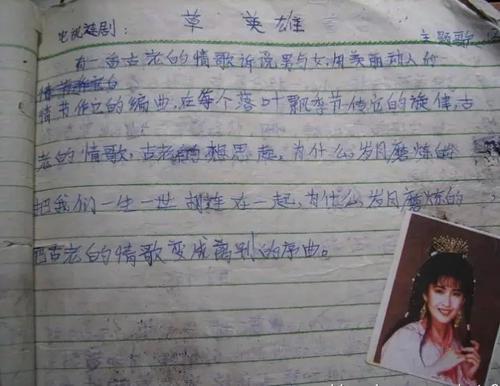 电视连剧: 草 英雄 主题歌
有一首古老的情歌诉说男与女,用美丽动人的
情节作它的编曲,在每个落叶飘季节传它的旋律,古
老的情歌,古老的相思起,为什么岁月磨炼的
把我们一生一世 相连在一起,为什么岁月磨炼的
古老的情歌变成离别的序曲。